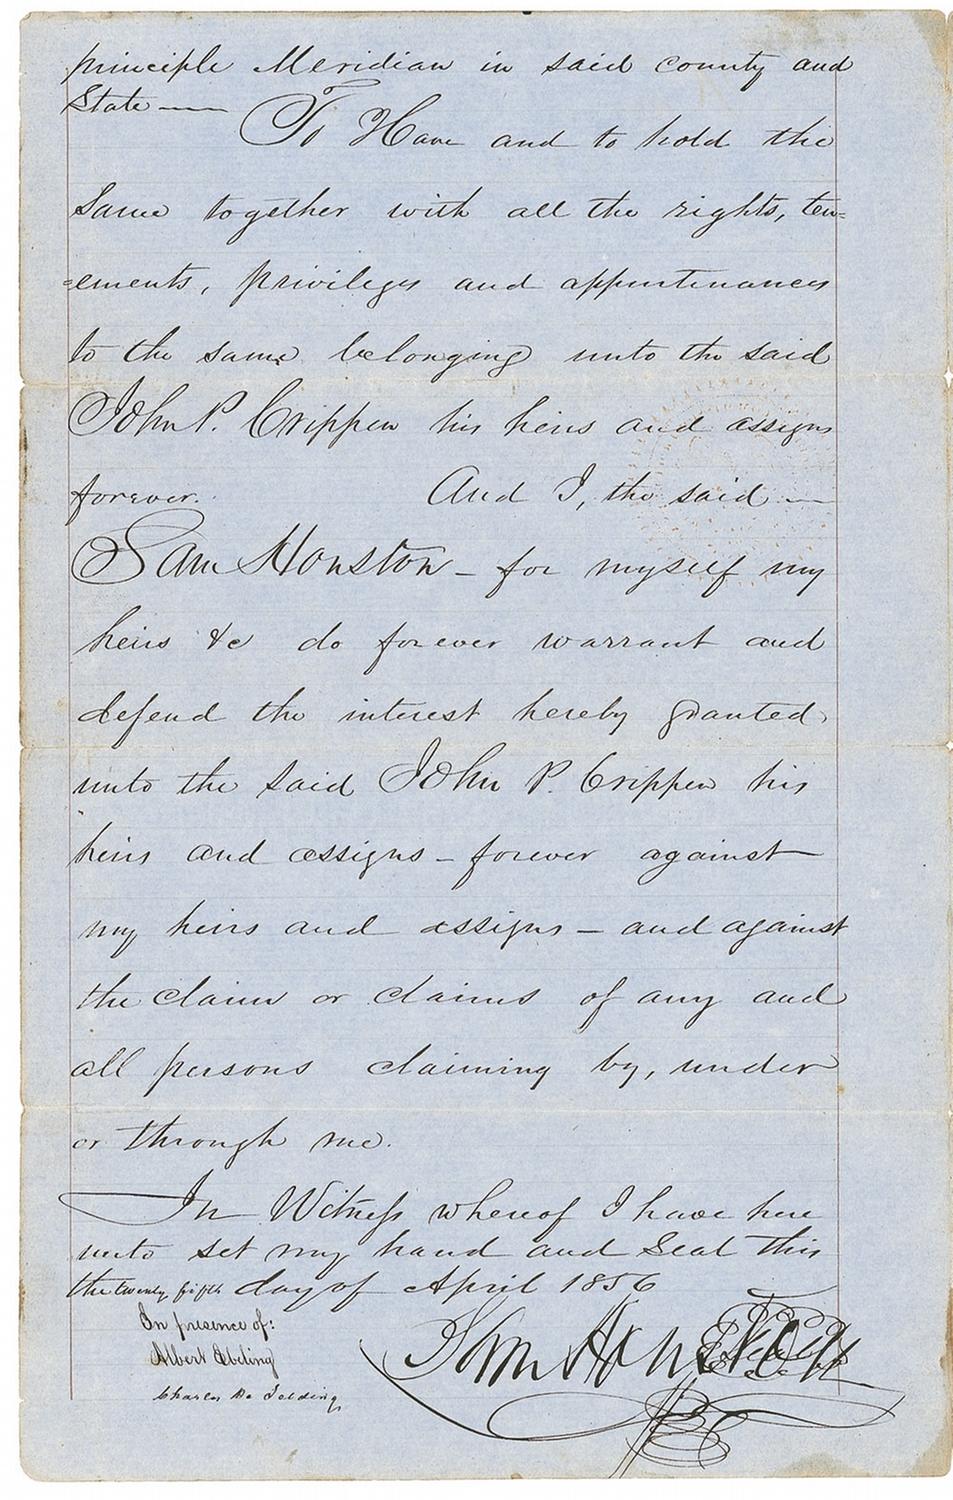 principle Meridian in said county and
State —
To Have and to hold the
Same together with all the rights, ten=
=ements, privileges and appurtenances
to the same belonging unto the said
John P. Crippen his heirs and assigns
forever. And I, the said —
Sam Houston – for myself my
heirs &c do forever warrant and
defend the interest hereby granted
unto the said John P. Crippen his
heirs and assigns – forever against
my heirs and assigns – and against
the claim or claims of any and
all persons claiming by, under
or through me.
In Witness whereof I have here
unto set my hand and Seal this
the twenty fifth day of April 1856
In presence of:
Sam Houston
Albert Ebeling
Charles